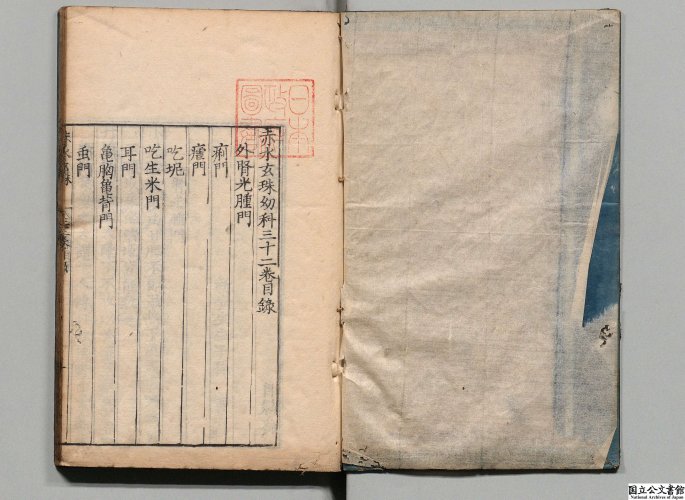 赤水玄珠幼科三十二卷目錄
外腎光腫門
痢門
瘧門
吃坭
吃生米門
耳門
龜胸龜背門
虫門
日本
政府
圖書
国立公文書館
National Archives of Japan